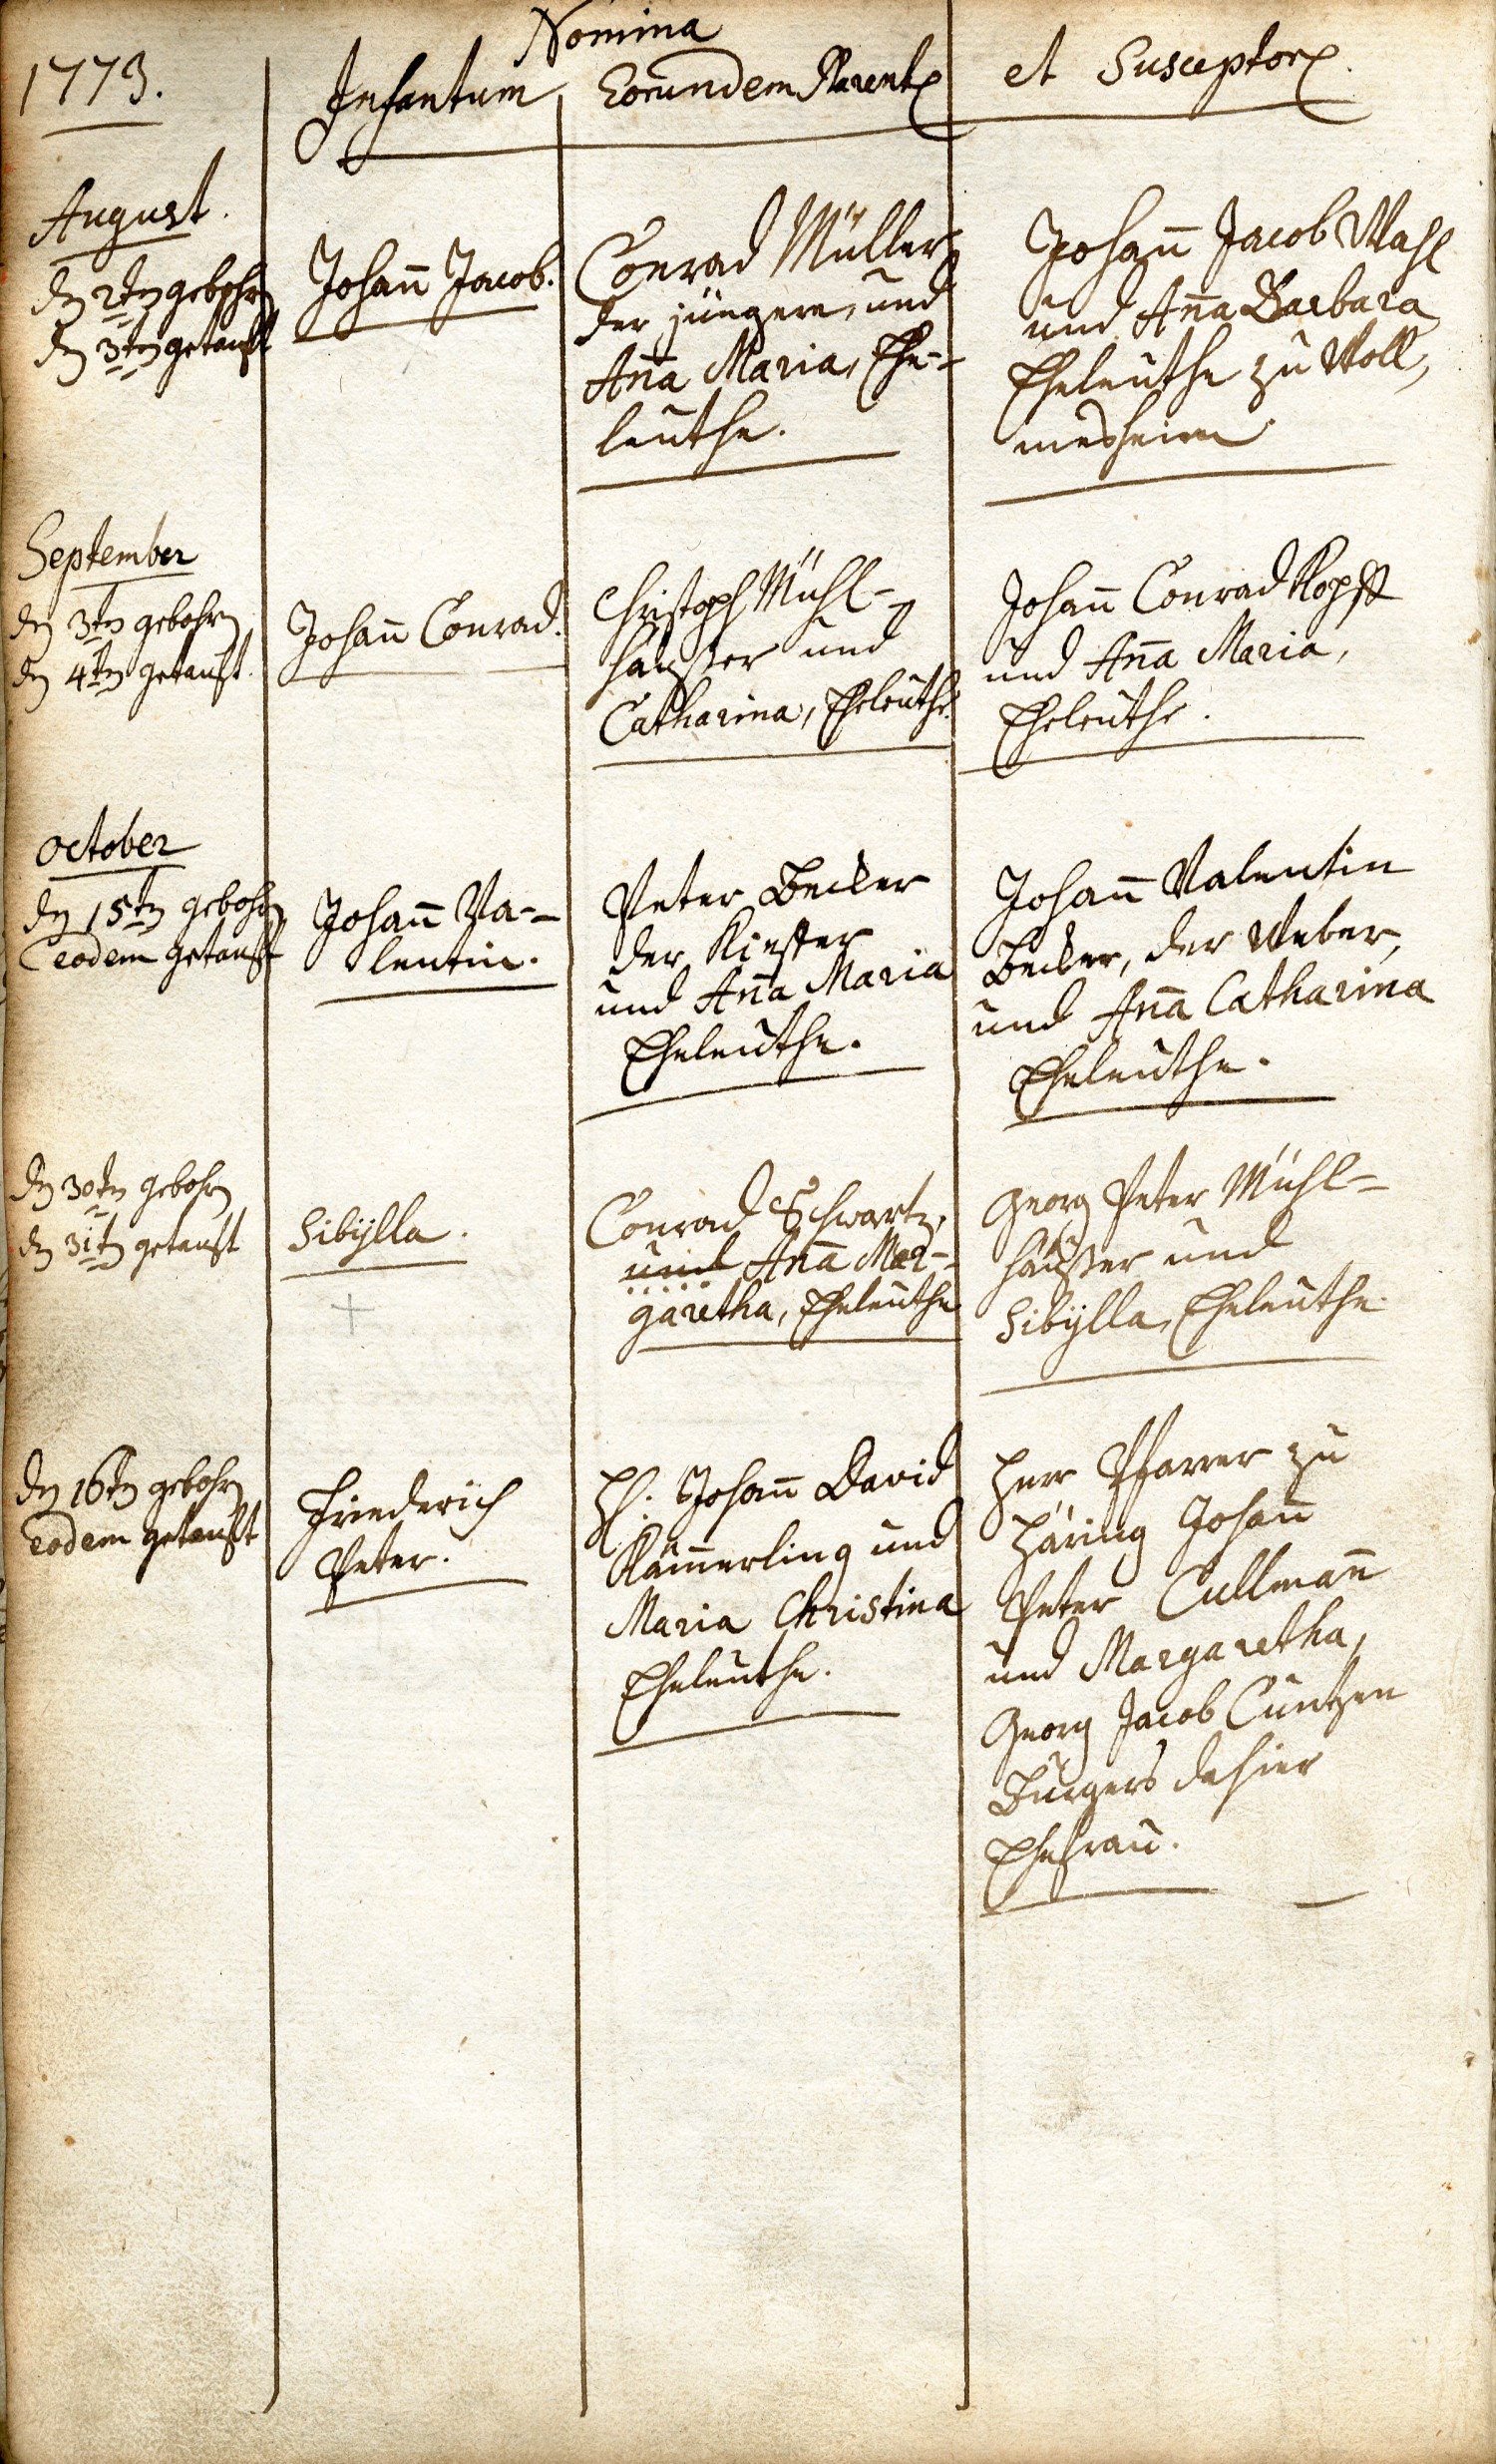 1773.
Nomina
Infantum
Eorundem Parent
et Susceptor
August.
dn 2tn gebohrn
dn 3tn getauft
Johan̄ Jacob.
Conrad Müller
der jüngere, und
An̄a Maria, Ehe-
leuthe.
Johan̄ Jacob Wahl
und An̄a Barbara
Eheleuthe zu Woll,
mesheim
September
dn 3tn gebohrn
dn 4tn getauft.
Johan̄ Conrad.
Christoph Mühl-
häußer und
Catharina, Eheleuthe.
Johan̄ Conrad Kopff
und An̄a Maria,
Eheleuthe.
October
dn 15tn gebohrn
eodem getauft
Johan̄ Va-
lentin.
Peter Becker
der Kieffer
und An̄a Maria
Eheleuthe.
Johan̄ Valentin
Becker, der Weber,
und An̄a Catharina
Eheleuthe.
dn 30tn gebohrn
dn 31tn getauft
Sibÿlla.
Conrad Schwartz,
und An̄a Mar-
garetha, Eheleuthe
Georg Peter Mühl-
häußer und
Sibÿlla, Eheleuthe.
dn 16tn gebohrn
eodem getauft
Friederich
Peter.
H: Johan̄ David
Käm̄erling und
Maria Christina
Eheleuthe.
Herr Pfarrer zu
Häring Johan̄
Peter Cullman̄
und Margaretha,
Georg Jacob Cuntzen
Burgers dahier
Ehefrau.